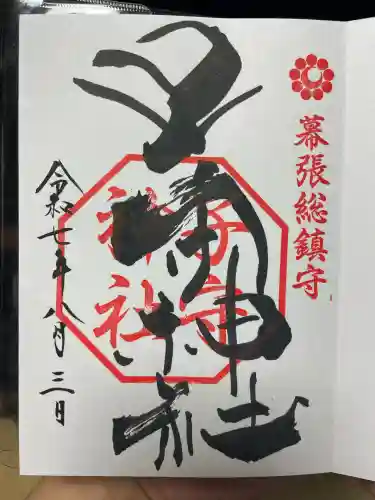 幕張総鎮守
子守神社
子守神社
令和七年八月三日